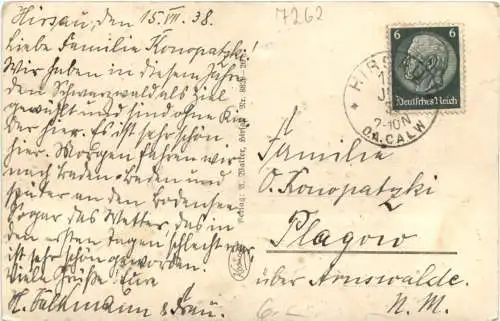 7262
Hirsau, den 15. VII. 38.
Liebe Familie Konopatzki!
Wir haben in diesem Jahre
den Schwarzwald als Ziel
gewählt und sind ohne Kin
der hier. Es ist sehr schön
hier. Morgen fahren wir
nach Baden-Baden und
später an den Bodensee.
Sogar das Wetter, das in
den ersten Tagen schlecht war,
ist sehr schön geworden.
Viele Grüße Eure
H. Falkmann & Frau.
Verlag: A.
6 6
Deutsches Reich
HIRS
7-10 N
O.A. CALW
Familie
O. Konopatzki
Plagow
über Arnswalde.
N. M.
6.-